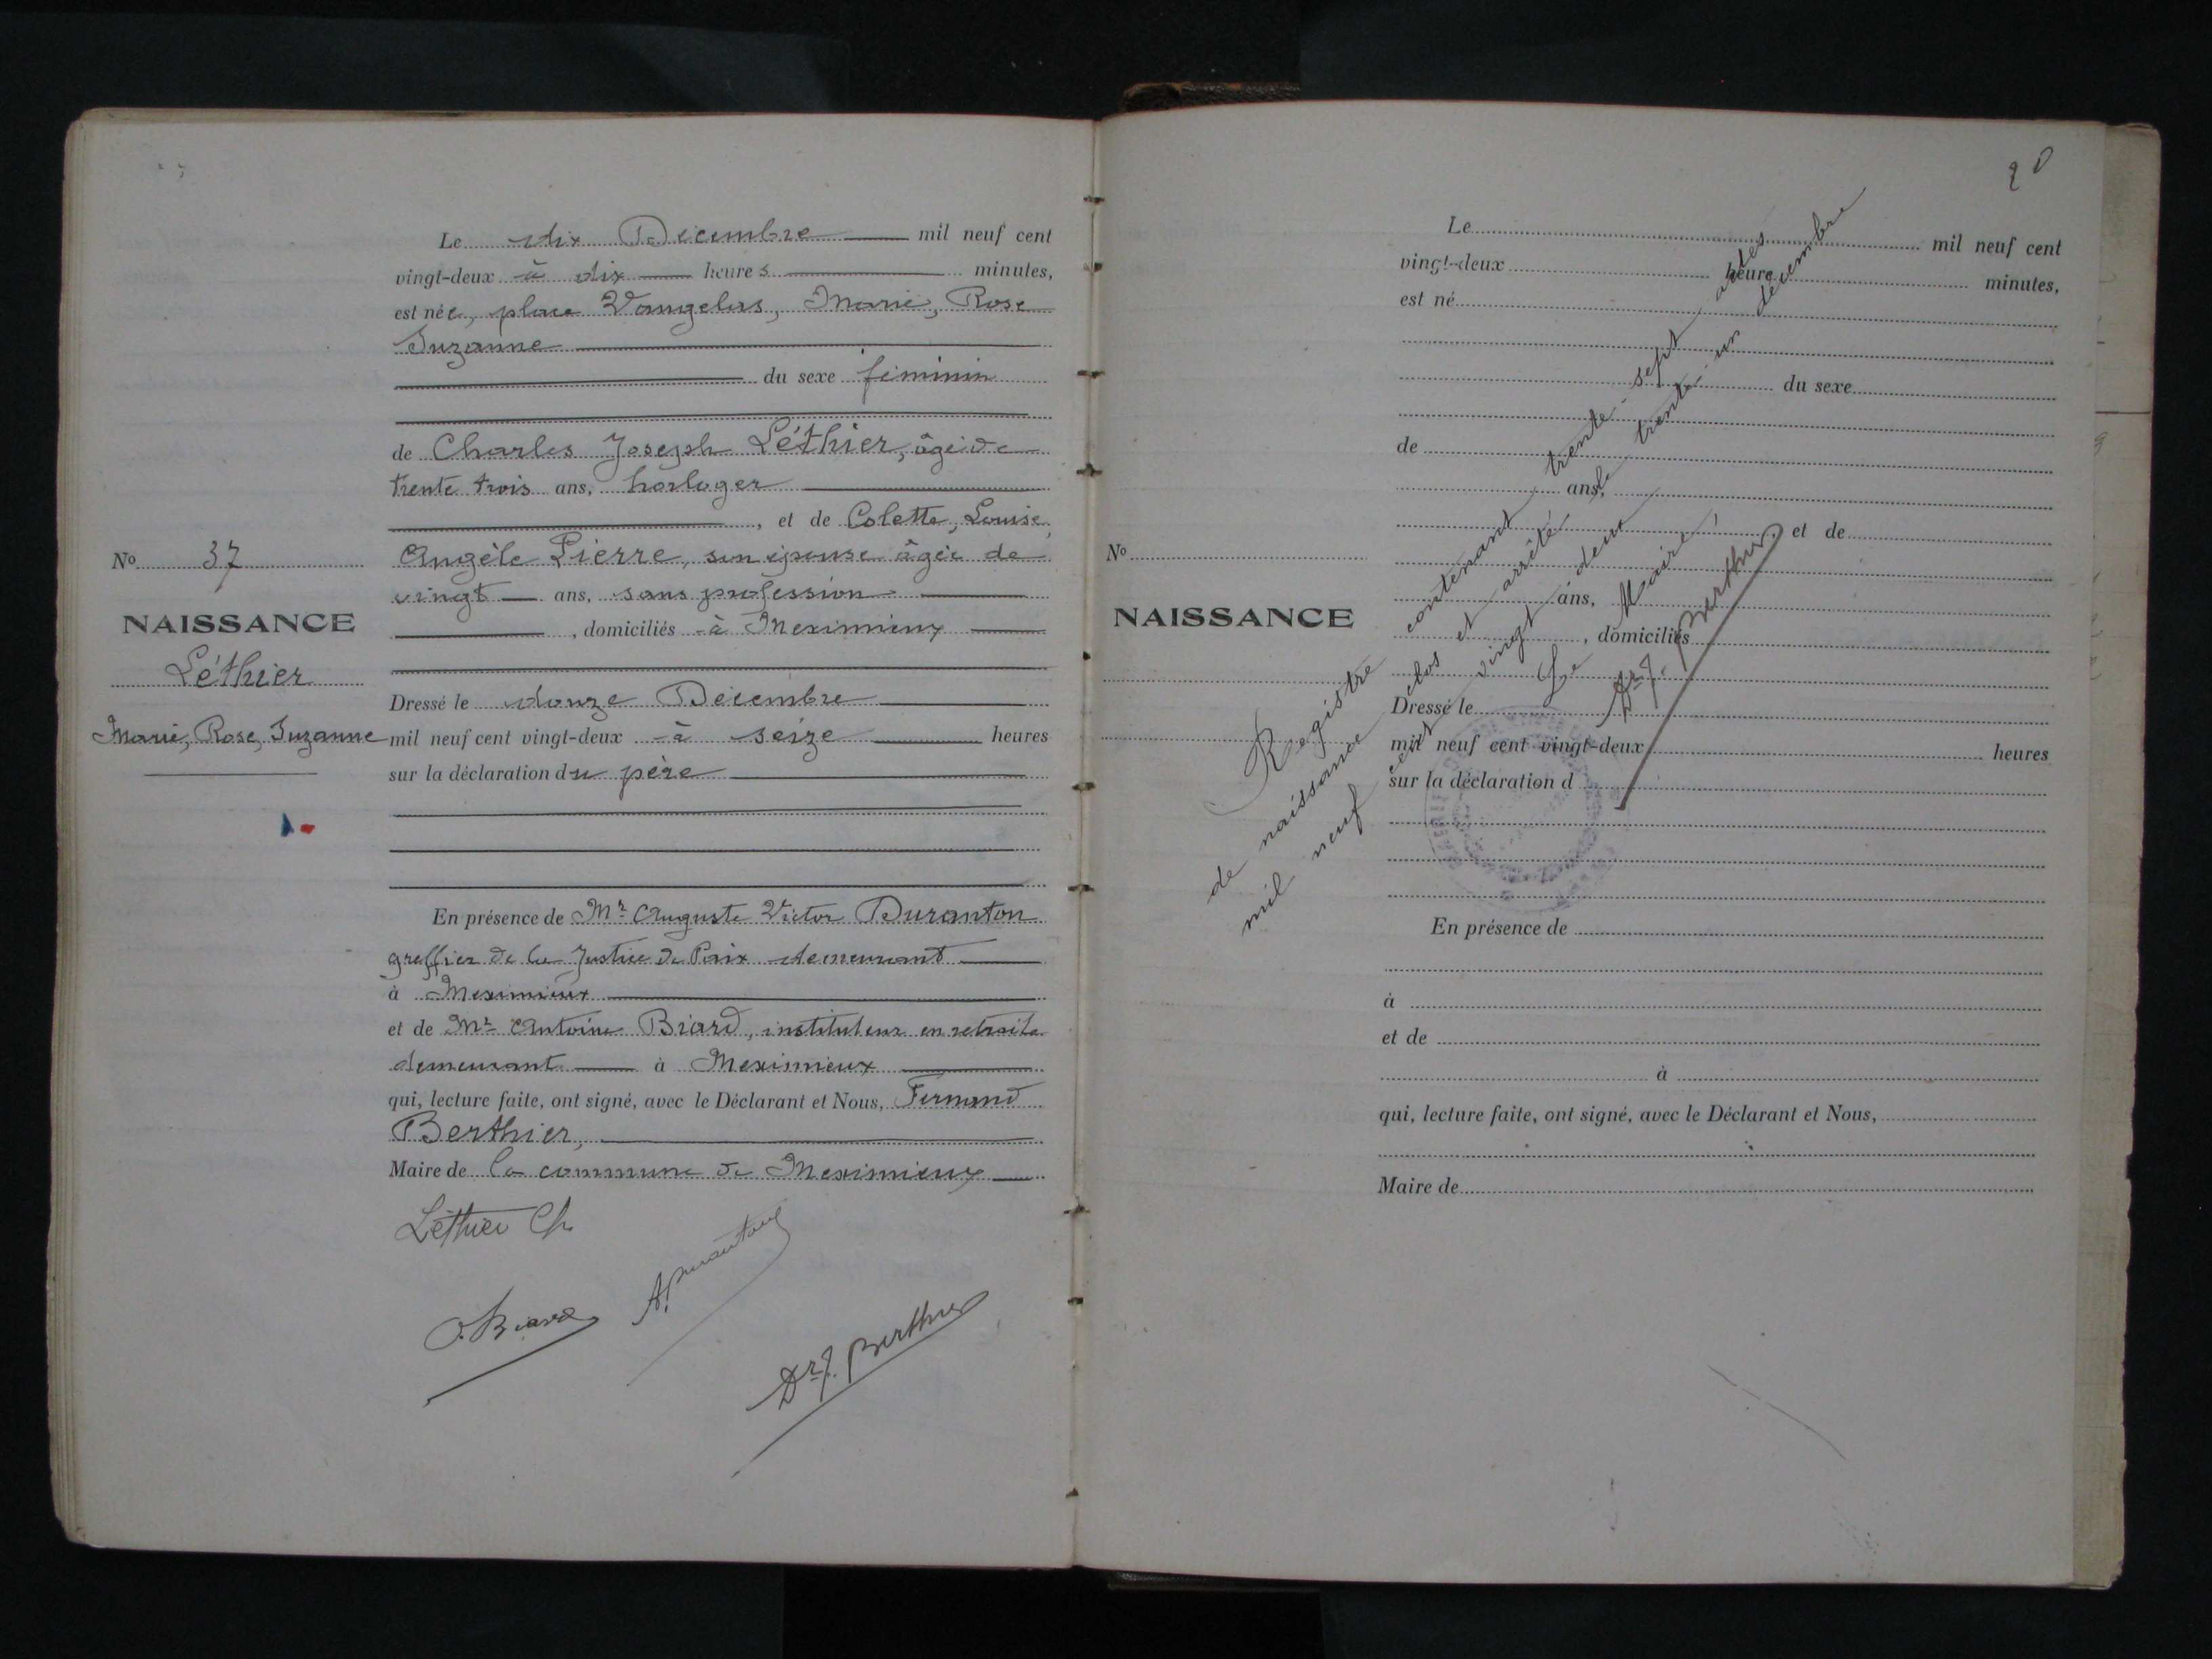 Le dix Décembre mil neuf cent
vingt-deux à dix heures minutes,
est née, place Vaugelas, Marie, Rose
Suzanne
du sexe féminin
de Charles Joseph Léthier, âgé de
trente trois ans, horloger
, et de Colette, Louise,
Angèle Pierre, son épouse âgée de
vingt ans, sans profession
, domiciliés à Meximieux
Dressé le douze Décembre
mil neuf cent vingt-deux à seize heures
sur la déclaration du père
En présence de Mr Auguste Victor Duranton
greffier de la Justice de Paix demeurant
à Meximieux
et de Mr Antoine Biard, instituteur en retraite
demeurant à Meximieux
qui, lecture faite, ont signé, avec le Déclarant et Nous, Fernand
Berthier,
Maire de la commune de Meximieux
Léthier Ch
A. Duranton
A. Biard
Dr F. Berthier
No 37
NAISSANCE
Léthier
Marie, Rose, Suzanne
20
Le mil neuf cent
vingt-deux heure minutes,
est né
du sexe
de
ans,
et de
ans,
, domiciliés
Dressé le
mil neuf cent vingt-deux heures
sur la déclaration d
En présence de
à
et de
à
qui, lecture faite, ont signé, avec le Déclarant et Nous,
Maire de
No
NAISSANCE
Registre contenant trente-sept actes
de naissance clos et arrêté le trente un décembre
mil neuf cent vingt deux
Le Maire
Dr F. Berthier